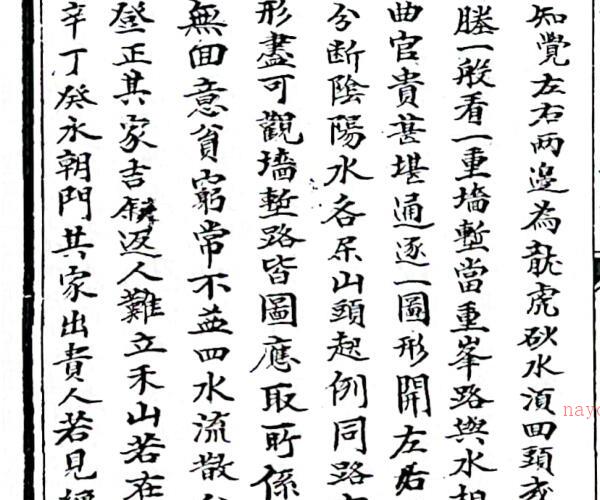 知覺左右兩邊為龍虎砍水須回頭
塍一般看一重墻塹當重峯路與水相
曲官貴甚堪通逐一圖形開左右
分断陰陽水各呆山頭起例同路
形盡可觀墻塹路皆圖應取一所係
無回意貧窮常不益四水流散
登正其家吉返人難立禾山若在
辛丁癸水朝門其家出貴人若見
nayo